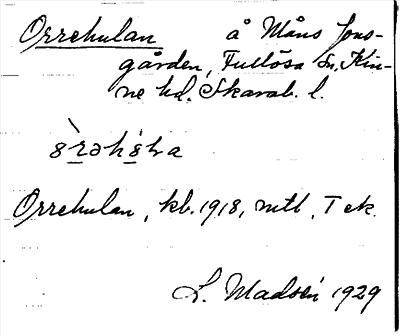 Orrekulan å Måns Jons-
gården, Fullösa Sn, Kin-
ne hd. Skarab. l.
Orrekulan, kb. 1918, mtl, T ek.
L. Madsén 1929